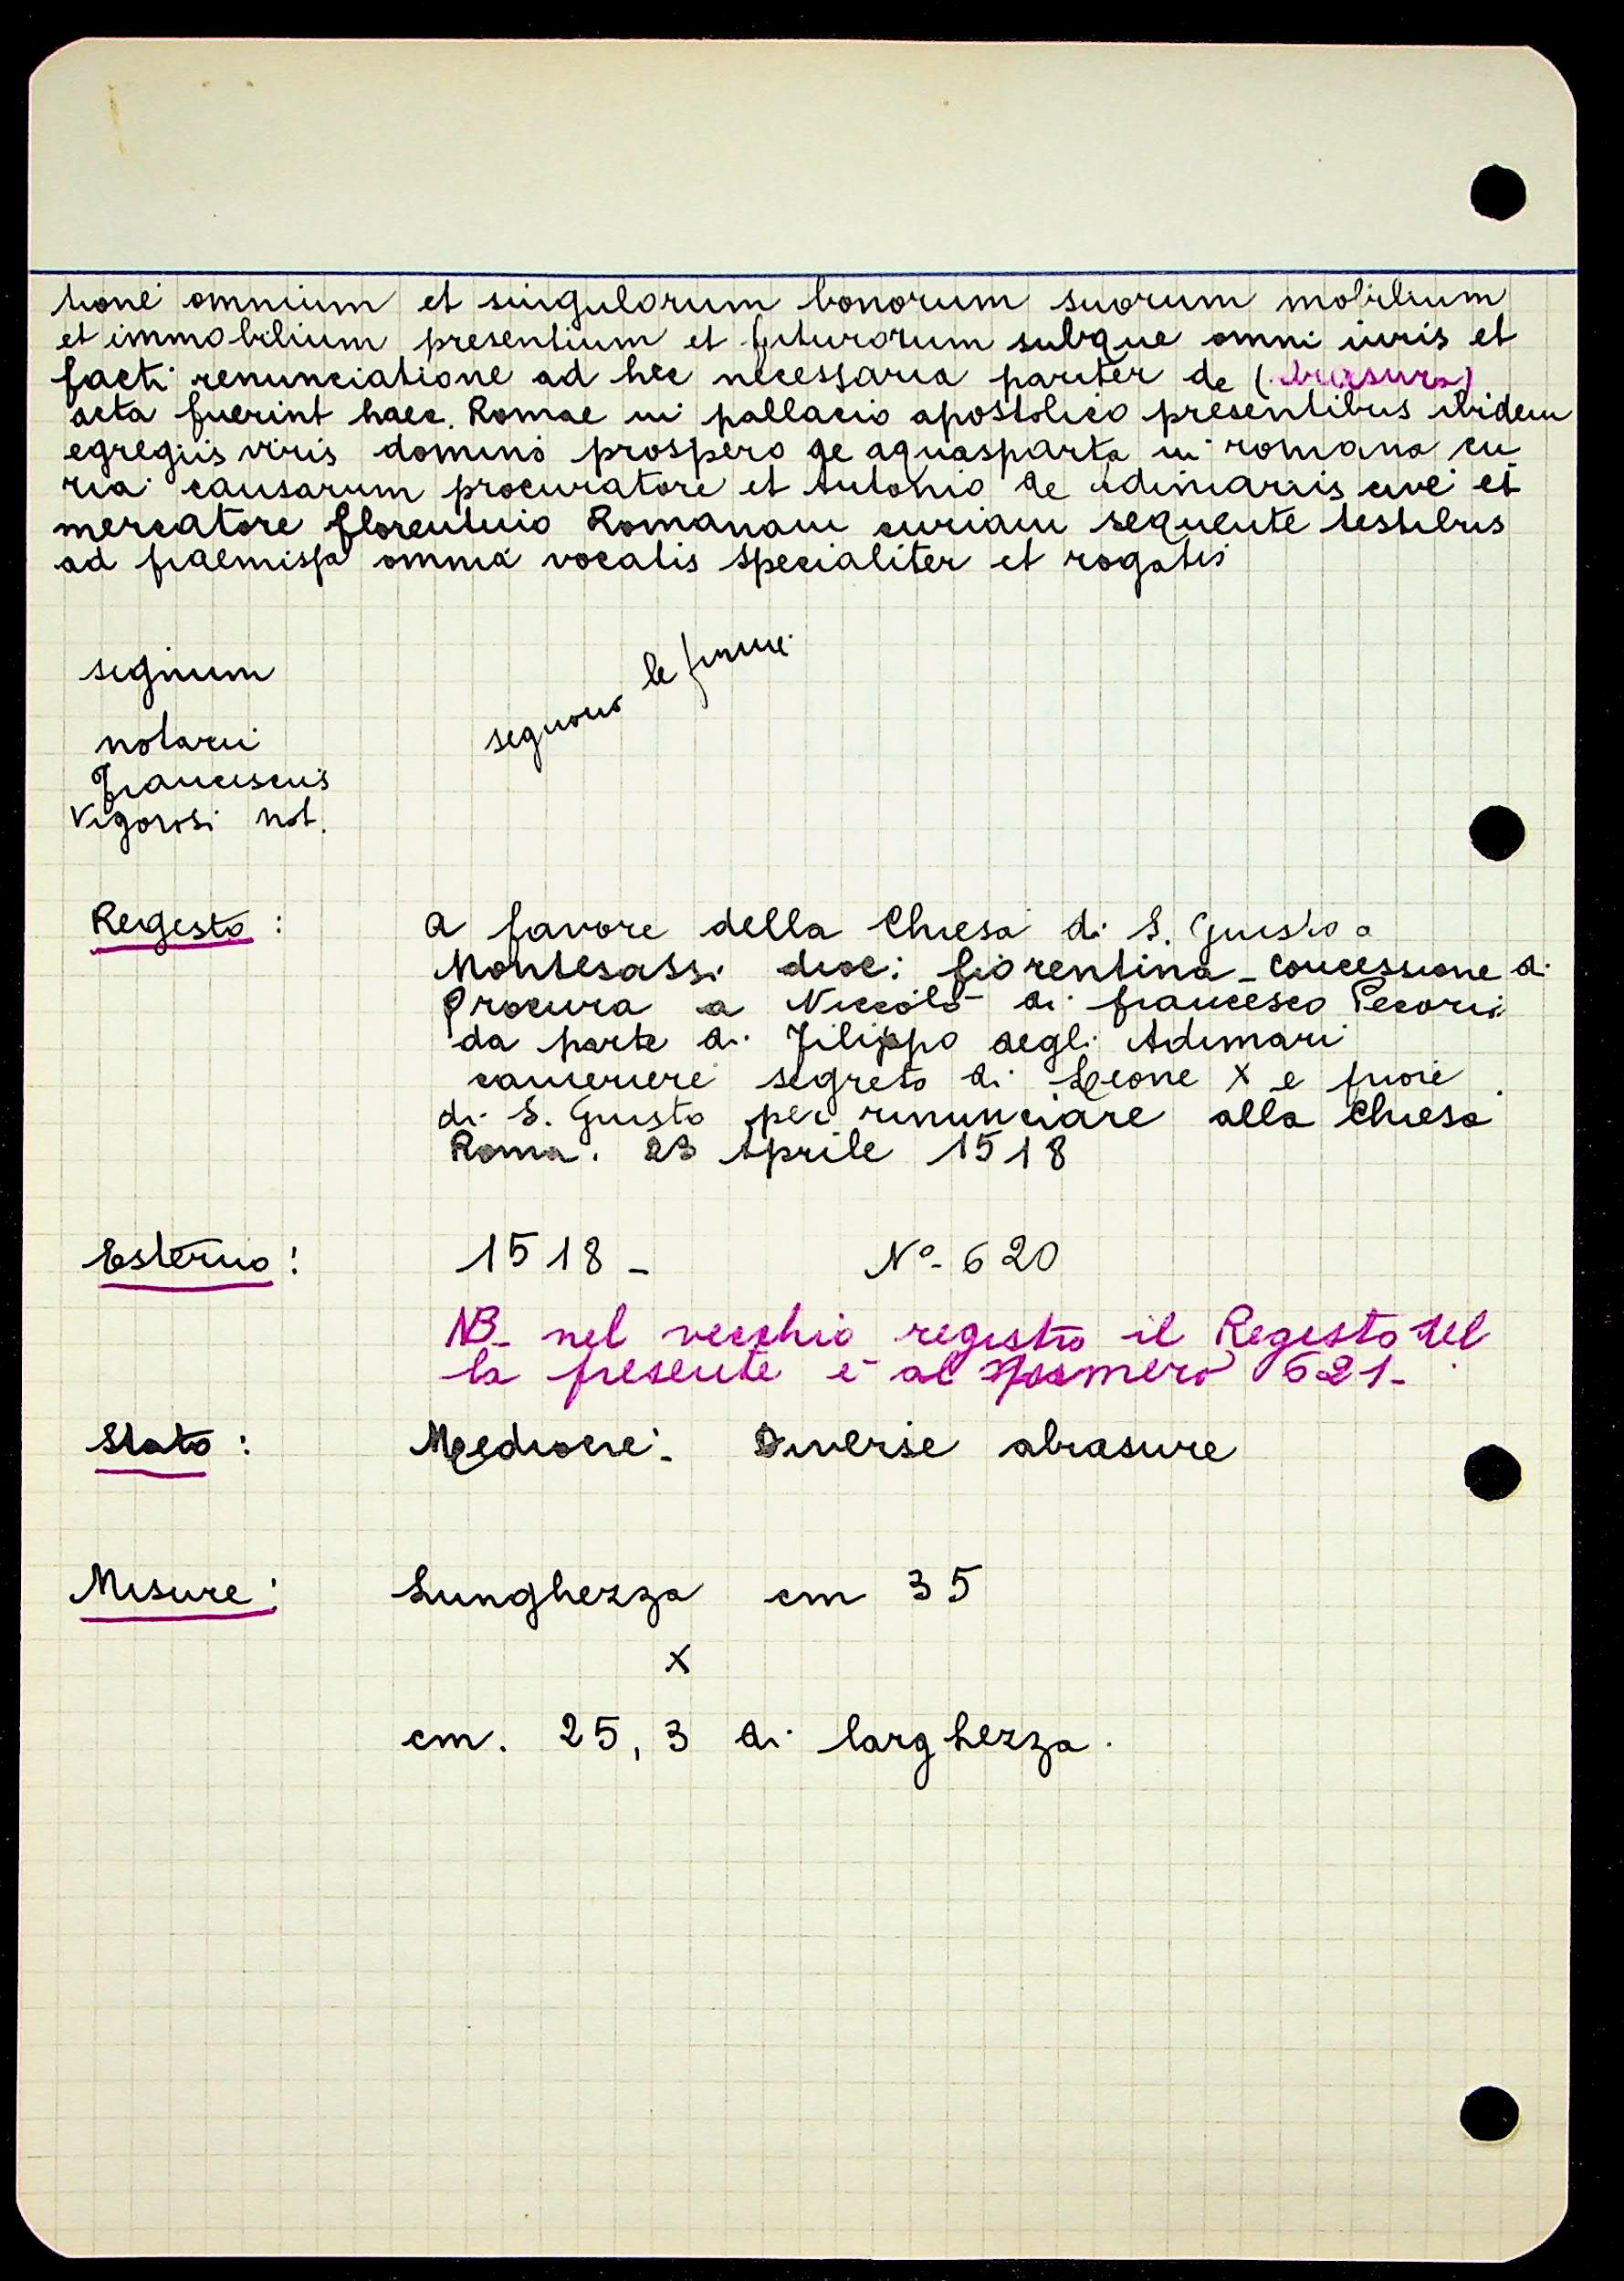 tione omnium et singulorum bonorum suorum mobilium
et immobilium presentium et futurorum subque omni iuris et
facti renunciatione ad hec necessaria pariter de (abrasura)
acta fuerint haec. Romae in pallacio apostolico presentibus ibidem
egregiis viris domino prospero de aquasparta in romana cu
ria causarum procuratore et Antonio de Adimariis cive et
mercatore florentino Romanam curiam sequente testibus
ad praemissa omnia vocatis specialiter et rogatis
seguono le firme
signum
notarii
Franciscus
Vigorosi not.
Regesto : A favore della Chiesa di S. Giusto a
Montesassi dioc: fiorentina - concessione di
Procura a Niccolò di francesco Pecori
da parte di Filippo degli Adimari
cameriere segreto di Leone X e priore
di S. Giusto per rinunciare alla Chiesa
Roma. 23 Aprile 1518
Esterno : 1518 - N°- 620
NB- nel vecchio registro il Regesto del
la presente è al numero 621-
Stato : Mediocre:- Diverse abrasure
Misure : Lunghezza cm 35
x
cm. 25,3 di larghezza.